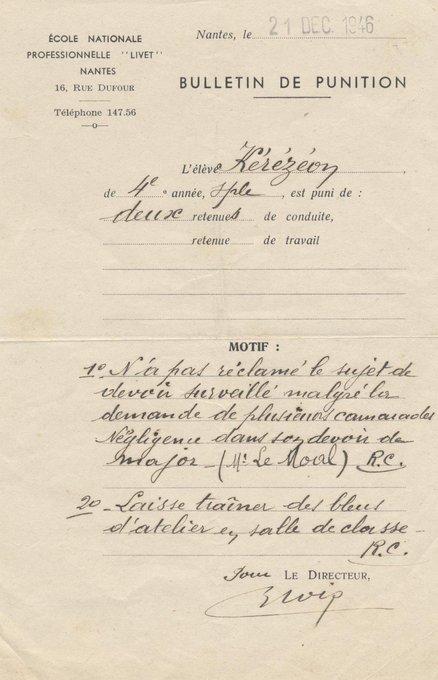 ÉCOLE NATIONALE
PROFESSIONNELLE "LIVET"
NANTES
16, RUE DUFOUR
Téléphone 147.56
Nantes, le 21 DEC. 1946
BULLETIN DE PUNITION
L'élève Kérézéon,
de 4e année, sple, est puni de :
deux retenues de conduite,
retenue de travail
MOTIF :
1o N'a pas réclamé le sujet de
devoir surveillé malgré la
demande de plusieurs camarades
Négligence dans son devoir de
major - (Mr Le Moal) R.C.
2o - Laisse traîner des bleus
d'atelier en salle de classe -
R.C.
Pour LE DIRECTEUR,